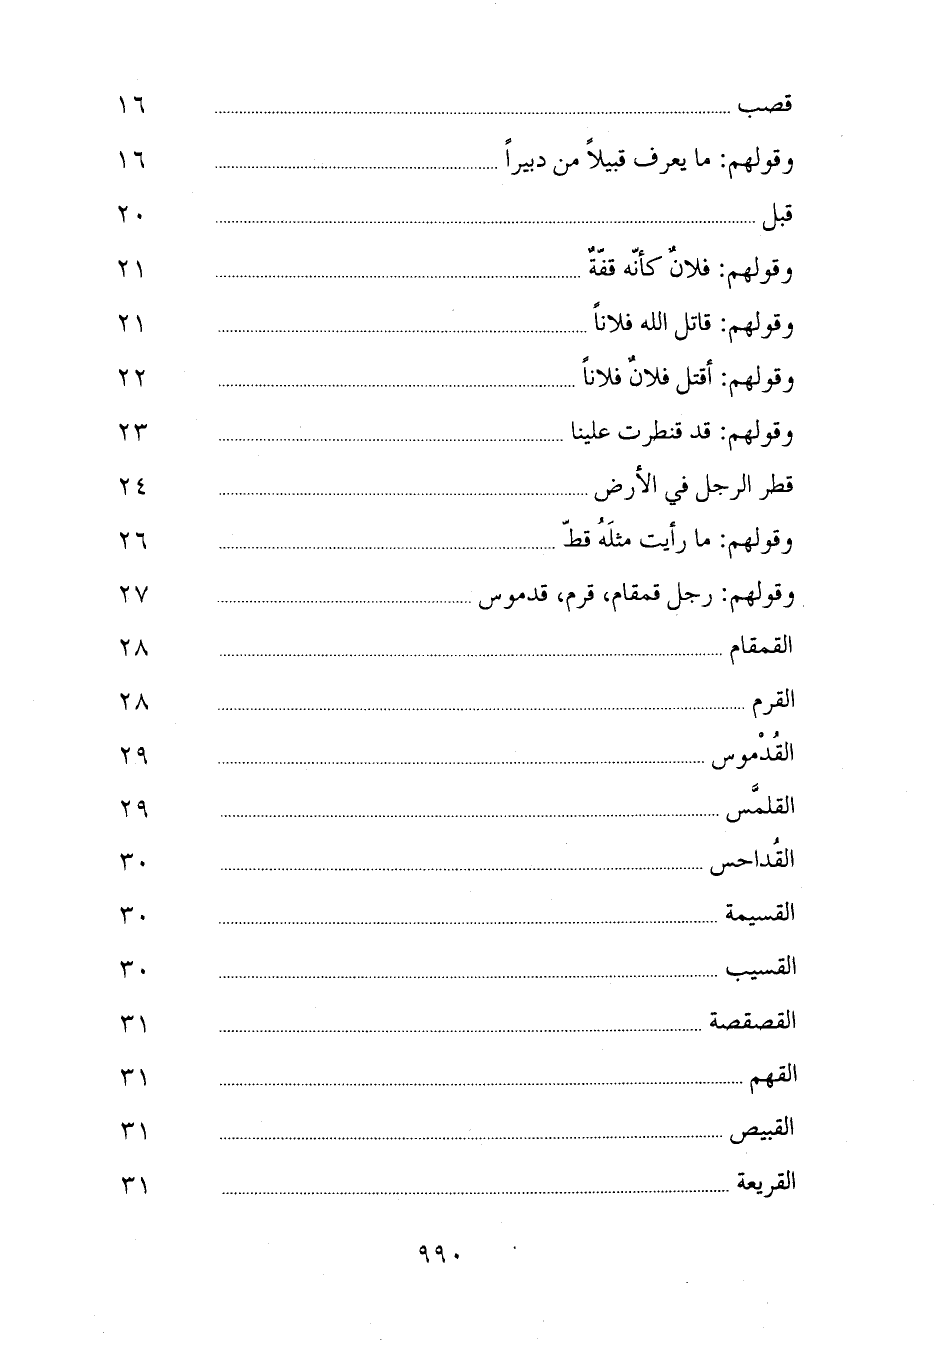 قصب ........ ١٦
وقولهم: ما يعرف قبيلاً من دبيراً ........ ١٦
قبل ........ ٢٠
وقولهم: فلانٌ كأنّه قفّةٌ ........ ٢١
وقولهم: قاتل الله فلاناً ........ ٢١
وقولهم: أقتل فلانٌ فلاناً ........ ٢٢
وقولهم: قد قنطرت علينا ........ ٢٣
قطر الرجل في الأرض ........ ٢٤
وقولهم: ما رأيت مثلَهُ قطّ ........ ٢٦
وقولهم: رجل قمقام، قرم، قدموس ........ ٢٧
القمقام ........ ٢٨
القرم ........ ٢٨
القُدْموس ........ ٢٩
القلمَّس ........ ٢٩
القُداحس ........ ٣٠
القسيمة ........ ٣٠
القسيب ........ ٣٠
القصقصة ........ ٣١
القهم ........ ٣١
القبيص ........ ٣١
القريعة ........ ٣١
٩٩٠